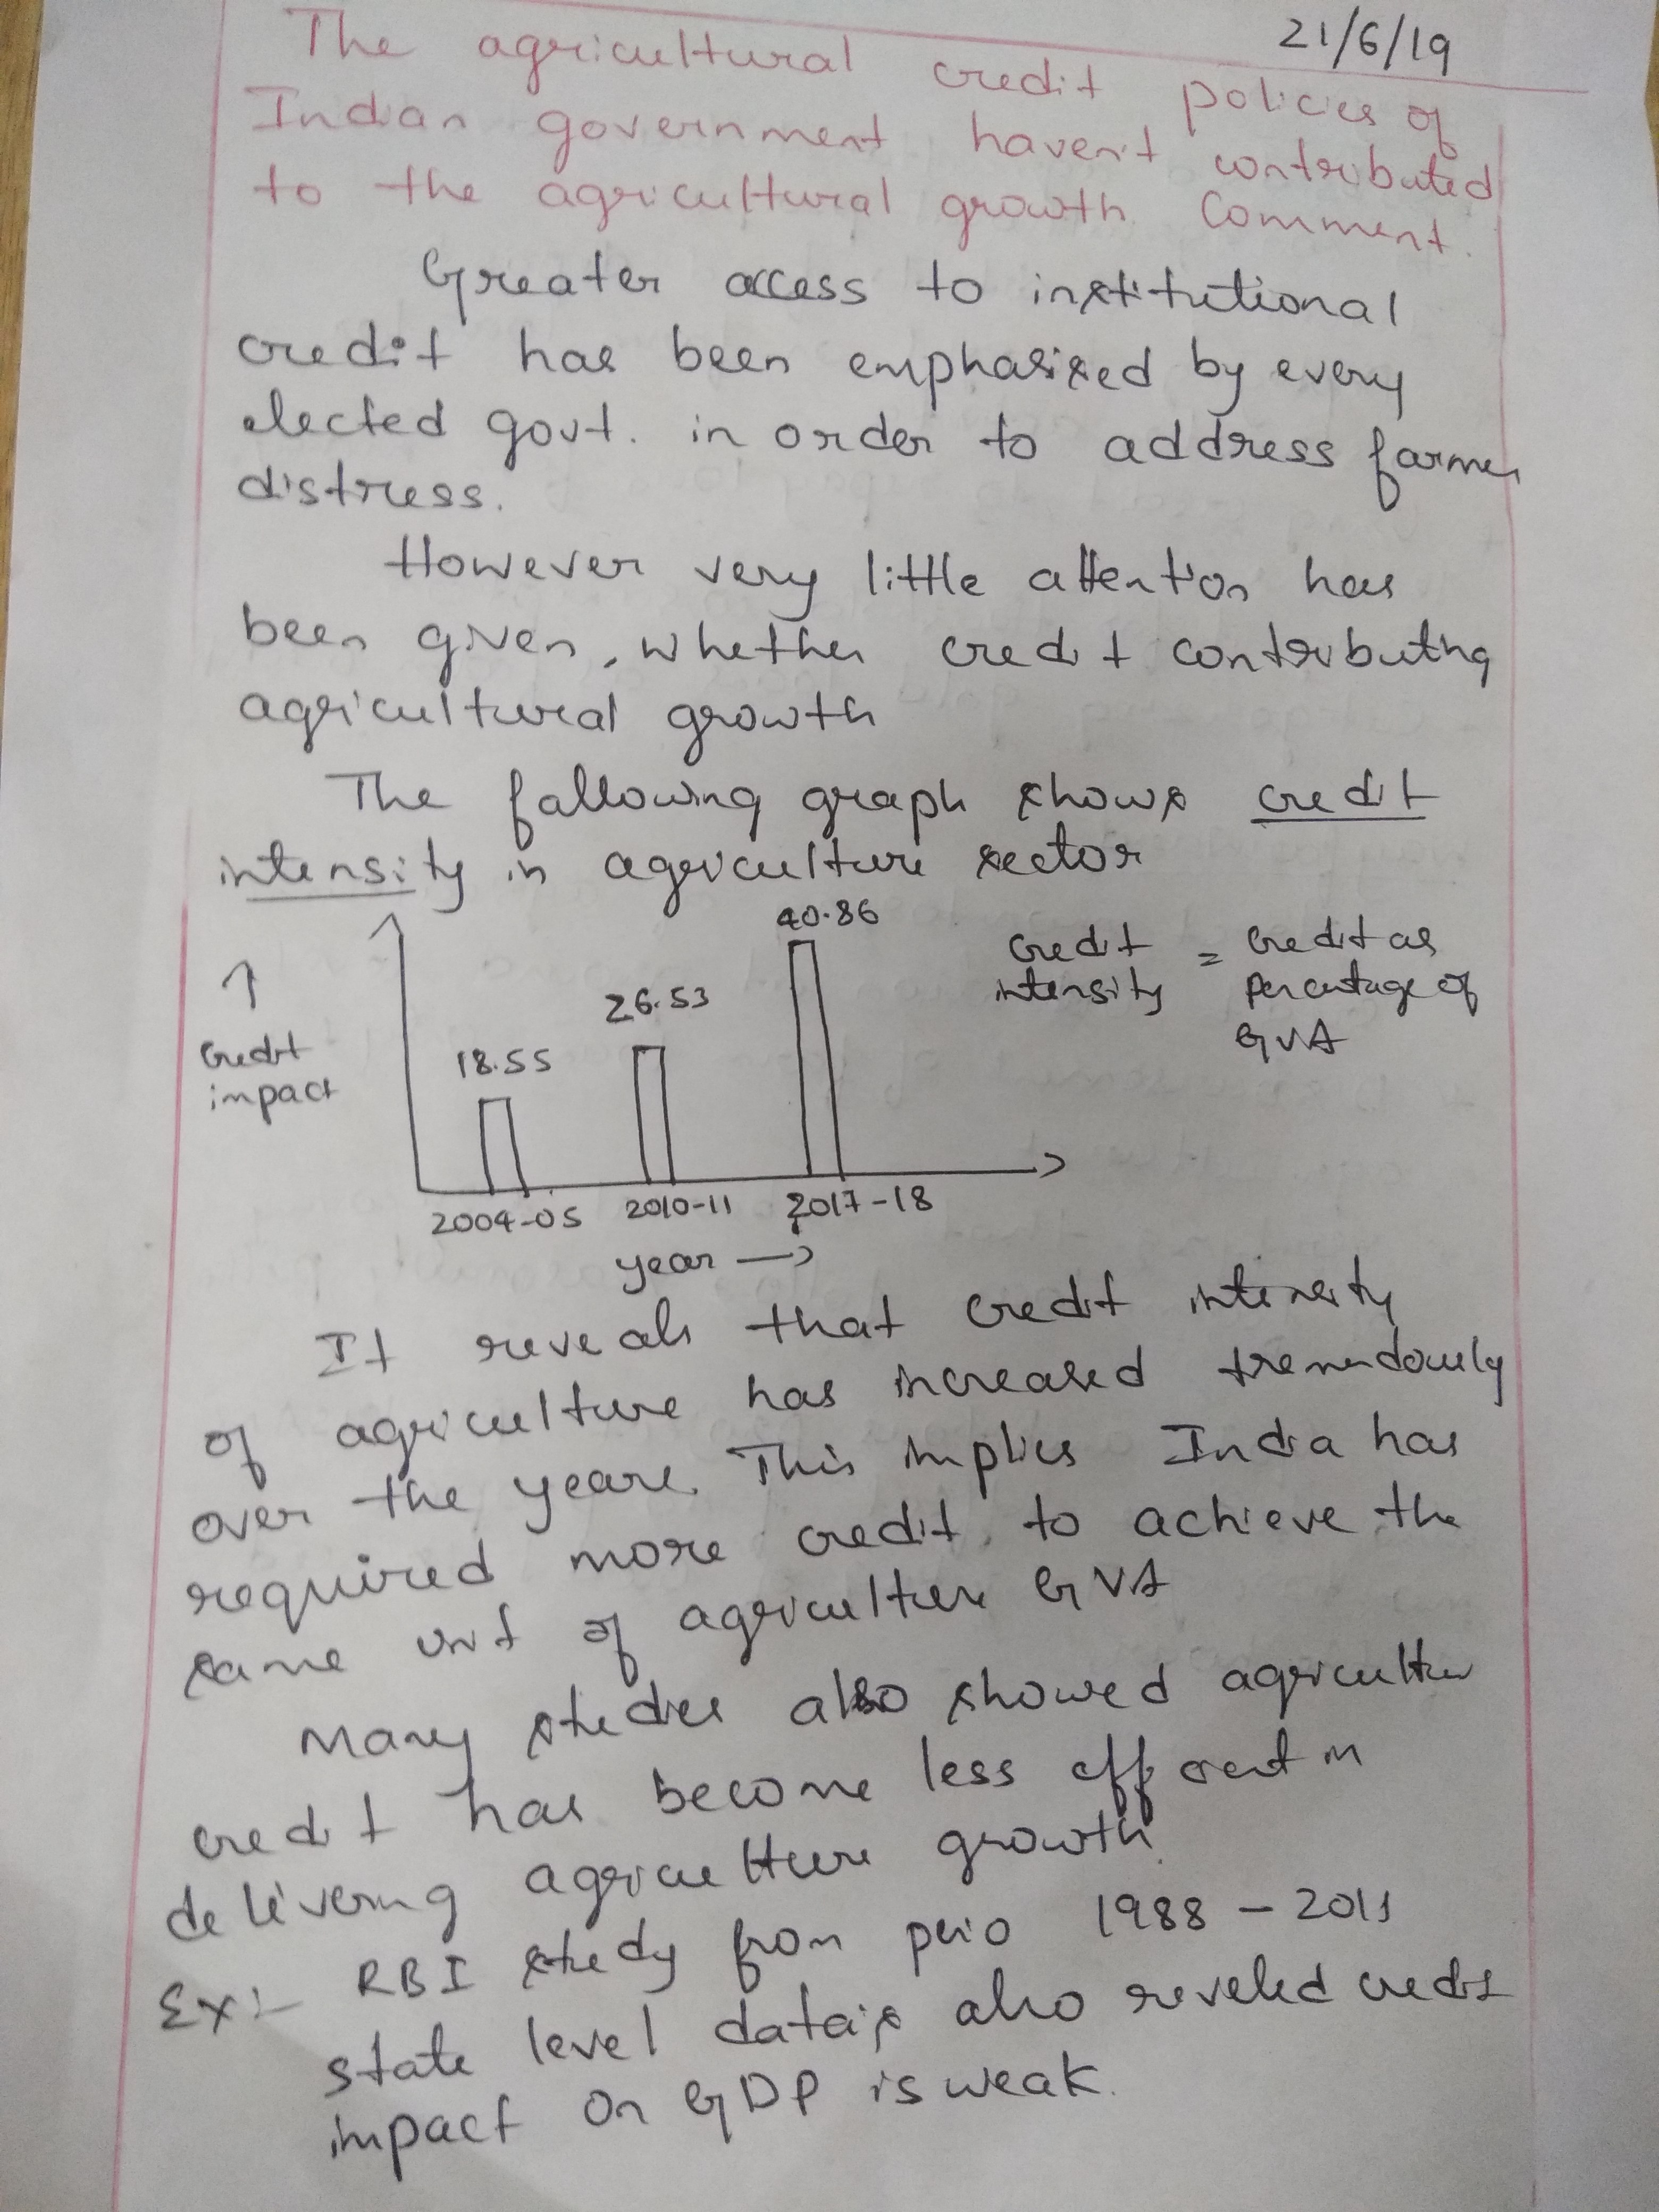 21/6/19
The agricultural credit policies of
Indian government haven't contributed
to the agricultural growth. Comment.
Greater access to institutional
credit has been emphasized by every
elected govt. in order to address farmer
distress.
However very little attention has
been given, whether credit contributing
agricultural growth
The following graph shows credit
intensity in agriculture sector
40.86
26.53
18.55
↑
Credit
impact
Credit intensity = Credit as percentage of GVA
2004-05 2010-11 2017-18
year →
It reveals that credit intensity
of agriculture has increased tremendously
over the years. This implies India has
required more credit, to achieve the
same unit of agriculture GVA
Many studies also showed agriculture
credit has become less efficient in
delivering agriculture growth.
Ex:- RBI study from perio 1988 - 2011
state level data also reveled credit
impact on GDP is weak.